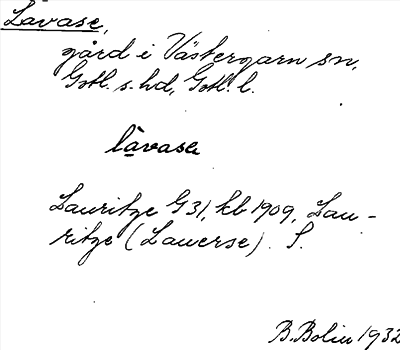 Lavase,
gård i Västergarn sn,
Gotl. s. hd, Gotl. l.
làvasa
Lauritze G 31, kb 1909, Lau-
ritze (Lauerse). S.
B. Bolin 1932